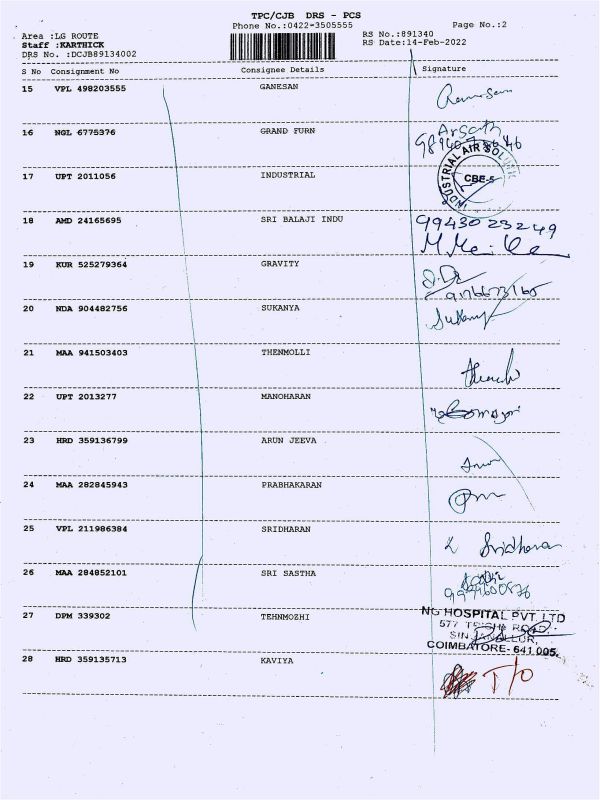 TPC/CJB DRS - PCS
Phone No.:0422-3505555
Page No.:2
Area :LG ROUTE
RS No.:891340
Staff :KARTHICK
RS Date:14-Feb-2022
DRS No. :DCJB89134002
S No Consignment No Consignee Details Signature
15 VPL 498203555 GANESAN
16 NGL 6775376 GRAND FURN
Arsath
17 UPT 2011056 INDUSTRIAL
INDUSTRIAL AIR
CBE-5
18 AMD 24165695 SRI BALAJI INDU
99430 23249
19 KUR 525279364 GRAVITY
20 NDA 904482756 SUKANYA
Sukanya
21 MAA 941503403 THENMOLLI
22 UPT 2013277 MANOHARAN
23 HRD 359136799 ARUN JEEVA
24 MAA 282845943 PRABHAKARAN
25 VPL 211986384 SRIDHARAN
Sridharan
26 MAA 284852101 SRI SASTHA
27 DPM 339302 TEHNMOZHI
NG HOSPITAL PVT. LTD
577 ROAD
COIMBATORE- 641 005.
28 HRD 359135713 KAVIYA
T/O